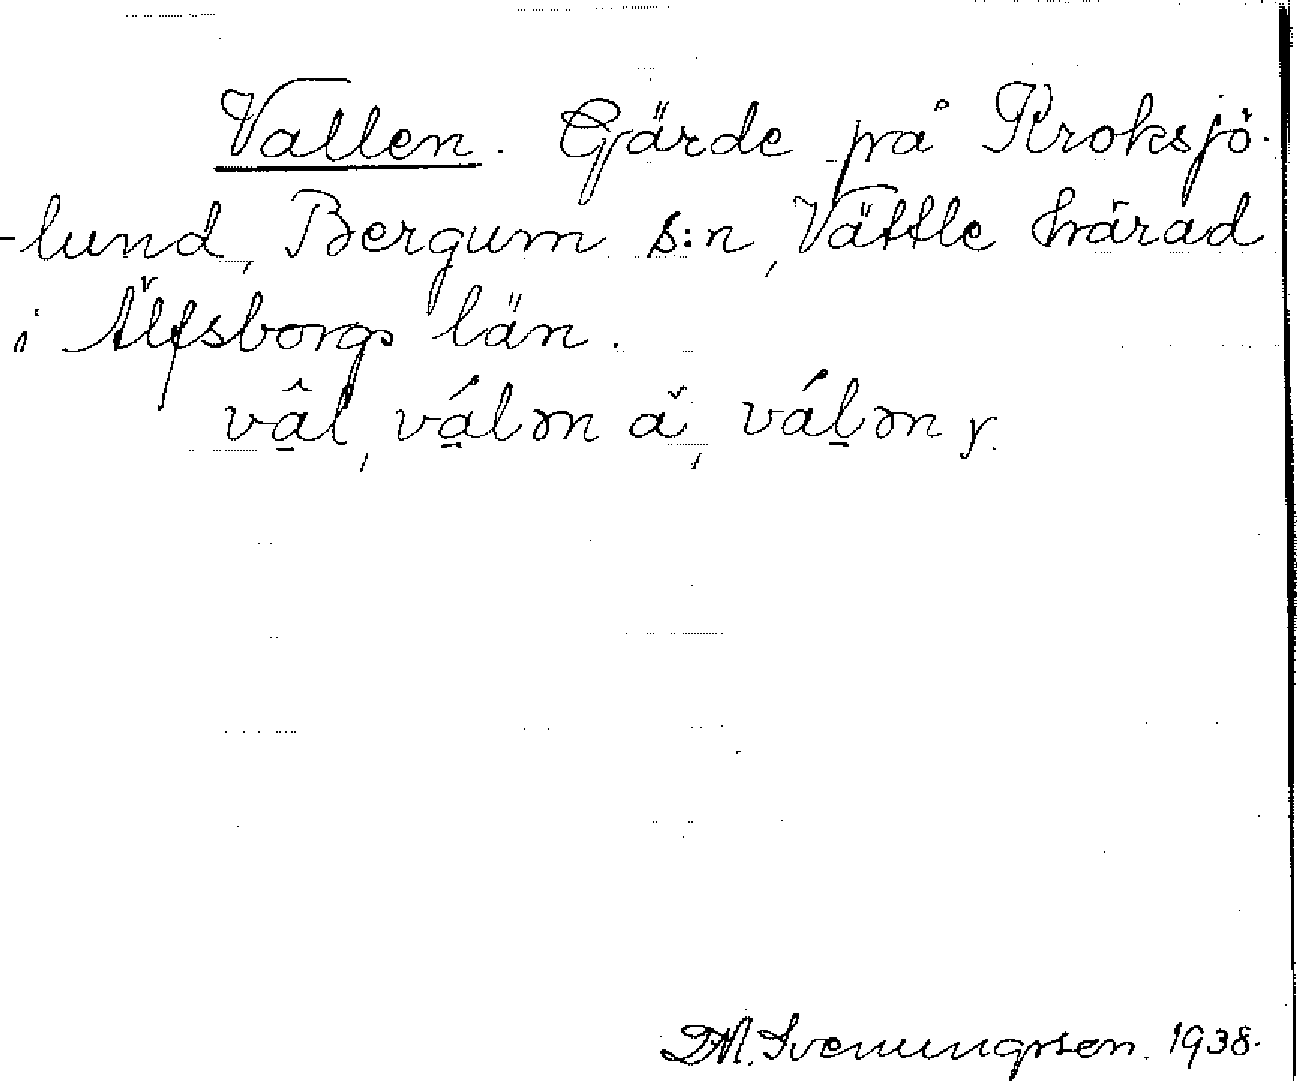 Vallen. Gärde på Kroksjö-
-lund, Bergum s:n, Vättle härad
i Älfsborgs län.
vâ̱l, vá̱lən ǎ, váḻən y.
D.M. Svenungsson. 1938.